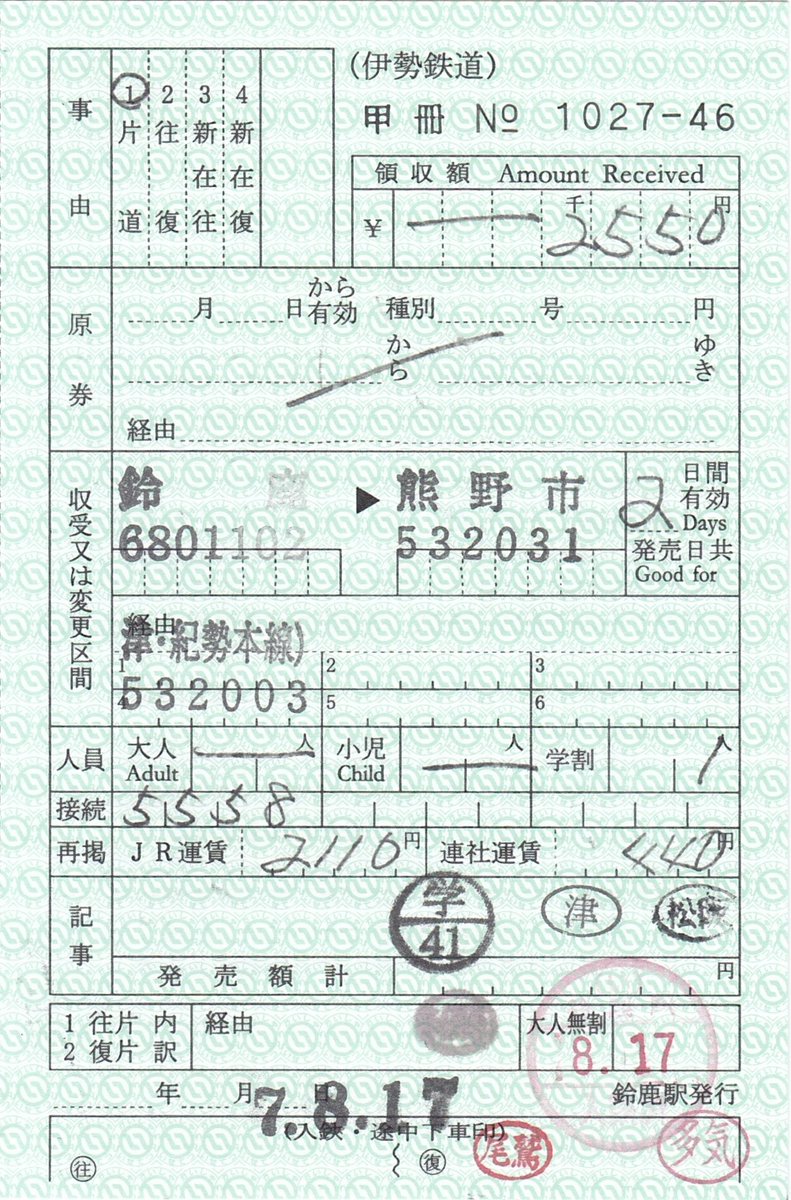 (伊勢鉄道)
甲冊 № 1027-46
事由
1 片道
2 往復
3 新在往
4 新在復
領収額 Amount Received
¥ 千 2550 円
原券
月 日から有効 種別 号 円
から ゆき
経由
収受又は変更区間
鈴鹿 ▶ 熊野市
6801102 532031
2 日間有効 Days
発売日共 Good for
経由
津・紀勢本線)
1 2 3
532003
4 5 6
人員 大人 Adult 人 小児 Child 人 学割 1人
接続 5558
再掲 JR運賃 2110円 連社運賃 440円
記事
学 41 津 松阪
発売額計 円
1 往片 内
2 復片 訳
経由 大人無割
8.17
年 月 日 鈴鹿駅発行
7.8.17
(入鋏・途中下車印)
往 復 尾鷲 多気